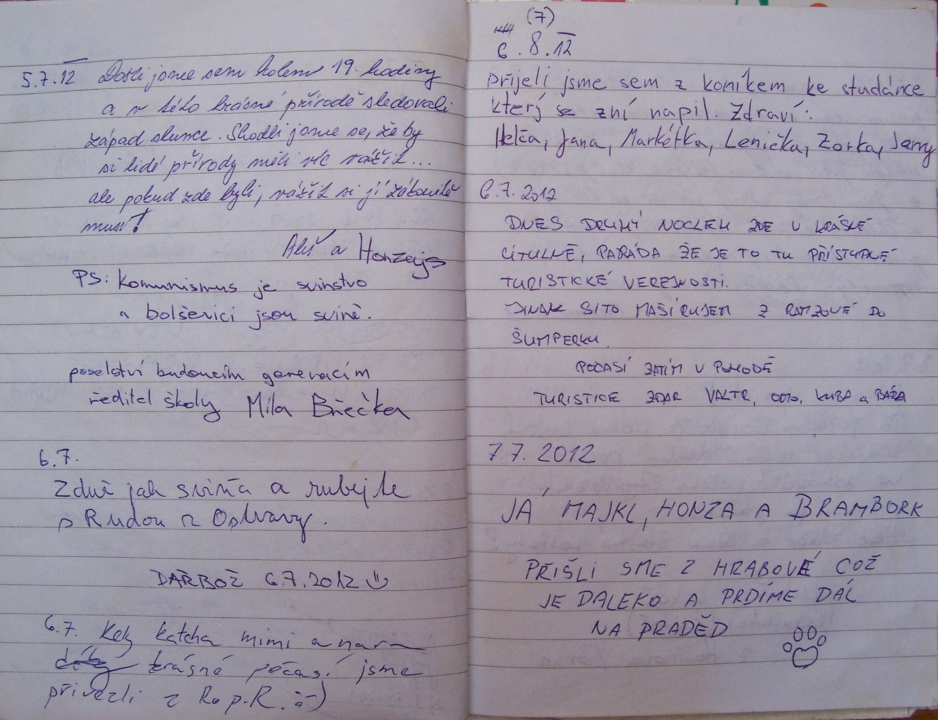 5.7.12 Došli jsme sem kolem 19. hodiny
a v této krásné přírodě sledovali
západ slunce. Shodli jsme se, že by
si lidé přírody měli víc vážit...
ale pokud zde byli, vážit si jí
musí!
Aleš a Honzajs
PS: Komunismus je svinstvo
a bolševici jsou svině.
poselství budoucím generacím
ředitel školy Mila Břečka
6.7.
jak sviňa a
s Rudou z
DAŘBOŽ 6.7.2012
6.7. katcha mimi a
krásné počasí jsme
přivezli z R. :-)
(7)
6.8.12
přijeli jsme sem z koníkem ke studánce
který se zní napil. Zdraví:
Helča, Jana, Markétka, Lenička, Zorka, Jerry
6.7.2012
DNES DRUHÝ NOCLEH ZDE V KRÁSNÉ
PARÁDA ŽE JE TO TU PŘÍSTUPNÉ
TURISTICKÉ VEREJNOSTI.
JINAK SI TO MAŠÍRUJEM Z RAMZOVÉ DO
ŠUMPERKU.
POČASÍ ZATÍM V POHODĚ
TURISTICE ZDAR VALTR, OTO, KUBA a BÁRA
7.7.2012
JÁ MAJKL, HONZA A BRAMBORK
PŘIŠLI SME Z HRABOVÉ COŽ
JE DALEKO A PRDÍME DÁL
NA PRADĚD